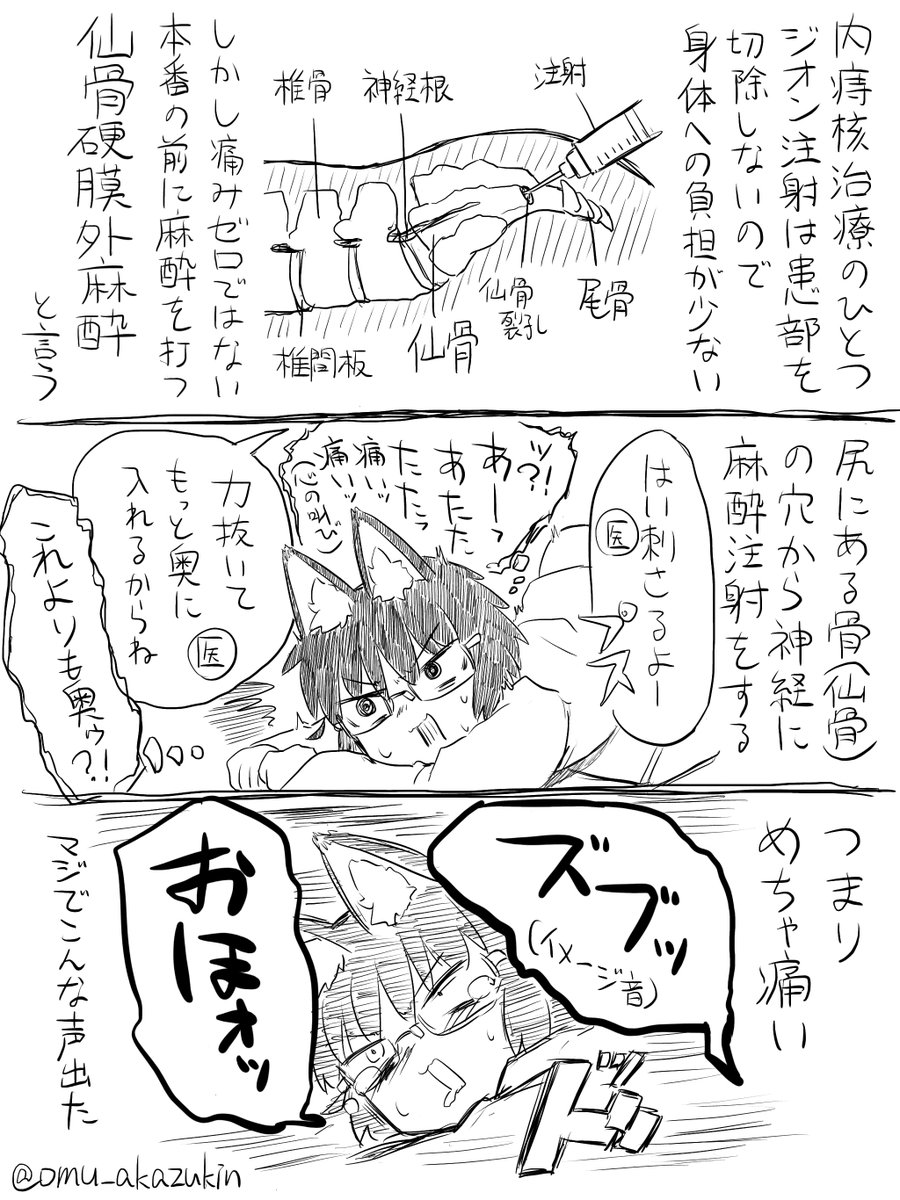 内痔核治療のひとつ
ジオン注射は患部を
切除しないので
身体への負担が少ない
注射
神経根
椎骨
尾骨
仙骨
裂孔
仙骨
椎間板
しかし痛みゼロではない
本番の前に麻酔を打つ
仙骨硬膜外麻酔
と言う
尻にある骨(仙骨)
の穴から神経に
麻酔注射をする
はい刺さるよー
医
プス
ッ?!
あーっ
あたた
たたっ
痛いッ
痛いッ
(心の叫び)
力抜いて
もっと奥に
入れるからね
医
これよりも奥ゥ?!
つまり
めちゃ痛い
ズブッ
(イメージ音)
ドッ
おほォッ
マジでこんな声出た
@omu_akazukin